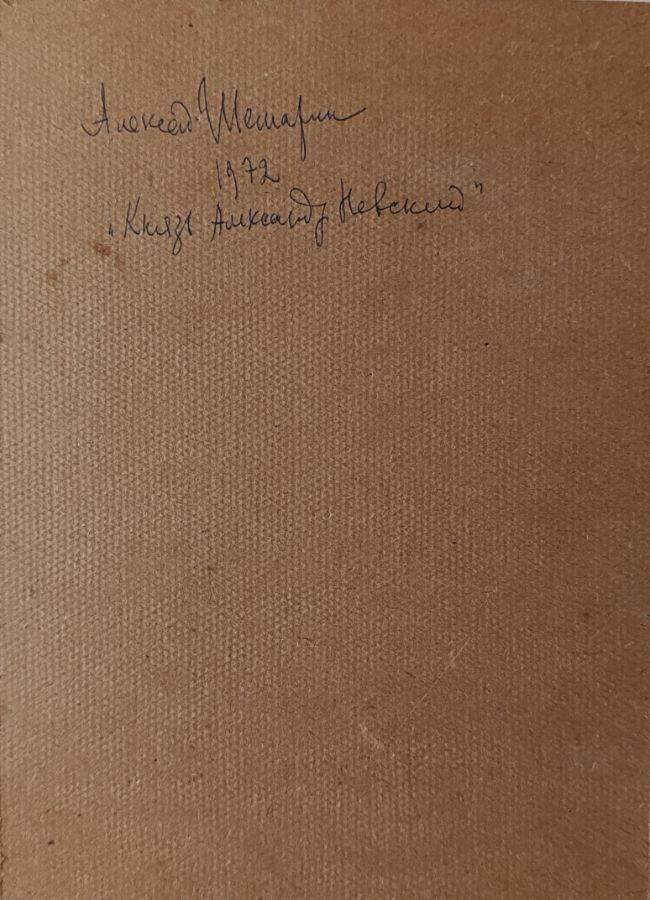 Алексей
1972
„Князь Александр Невский"